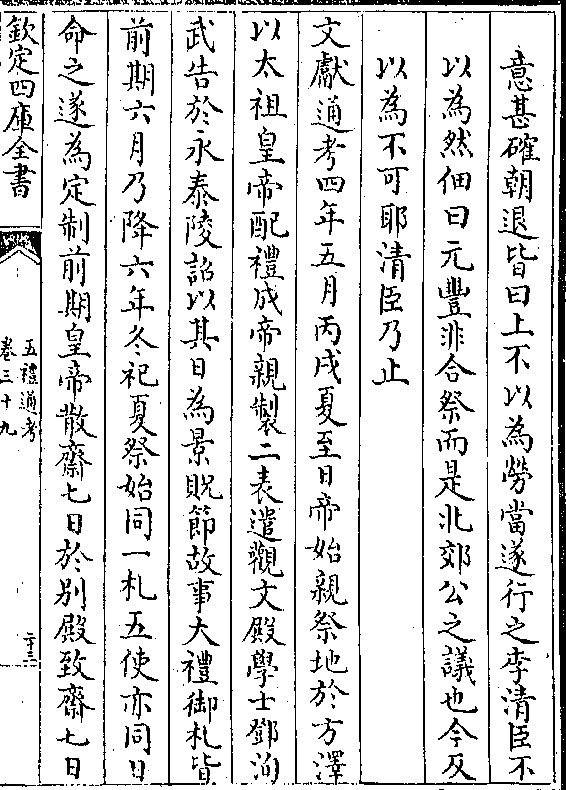 意甚確朝退皆曰上不以為勞當遂行之李清臣不
以為然佃曰元豐非合祭而是北郊公之議也今反
以為不可耶清臣乃止
文獻通考四年五月丙戌夏至日帝始親祭地於方澤
以太祖皇帝配禮成帝親製二表遣觀文殿學士鄧洵
武告於永泰陵詔以其日為景貺節故事大禮御札皆
前期六月乃降六年冬祀夏祭始同一札五使亦同日
命之遂為定制前期皇帝散齋七日於別殿致齋七日
欽定四庫全書
五禮通考
卷三十九
二十三